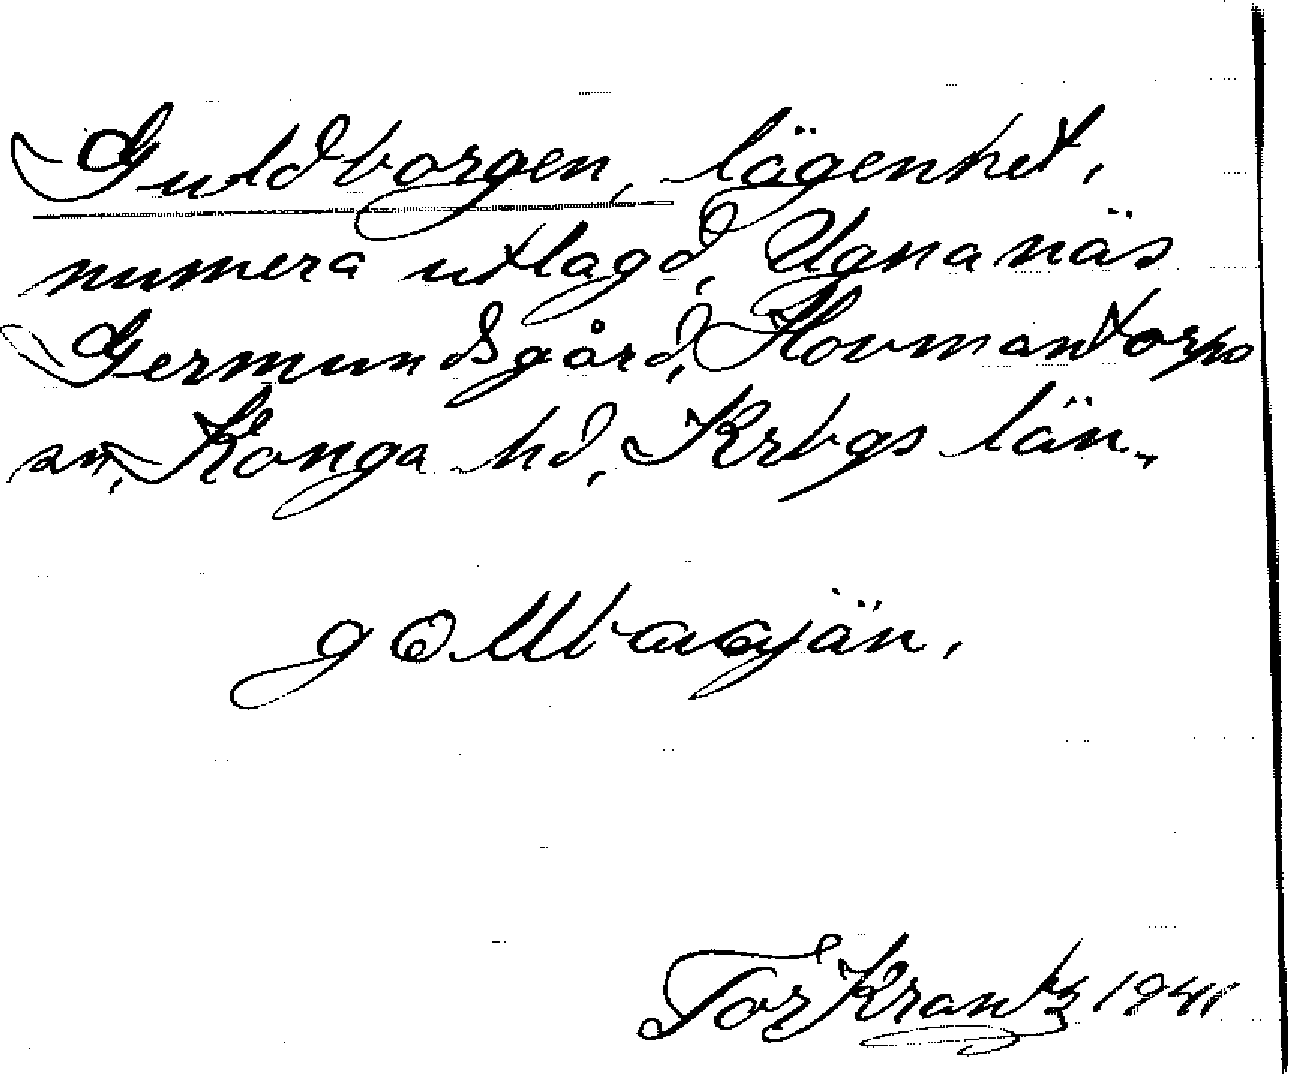 Guldborgen, lägenhet,
numera utlagd, Ugnanäs
Germundsgård, Hovmantorps
sn, Konga hd, Krbgs län.
Tor Krantz 1941